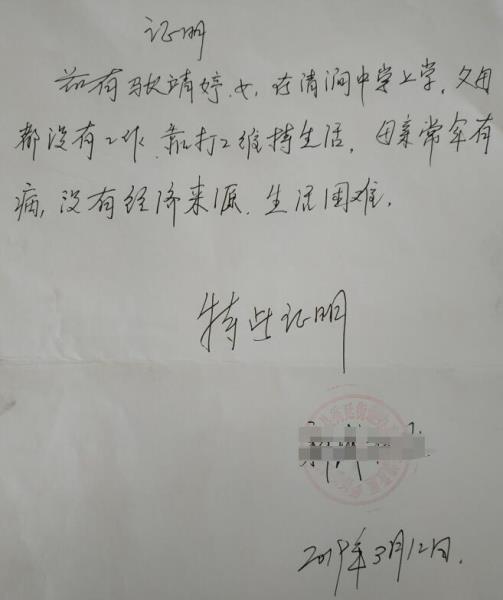 证明
茲有马文靖婷,女,在清涧中学上学,父母
都没有工作,靠打工维持生活,母亲常年有
病,没有经济来源,生活困难,
特此证明
2019年3月12日.